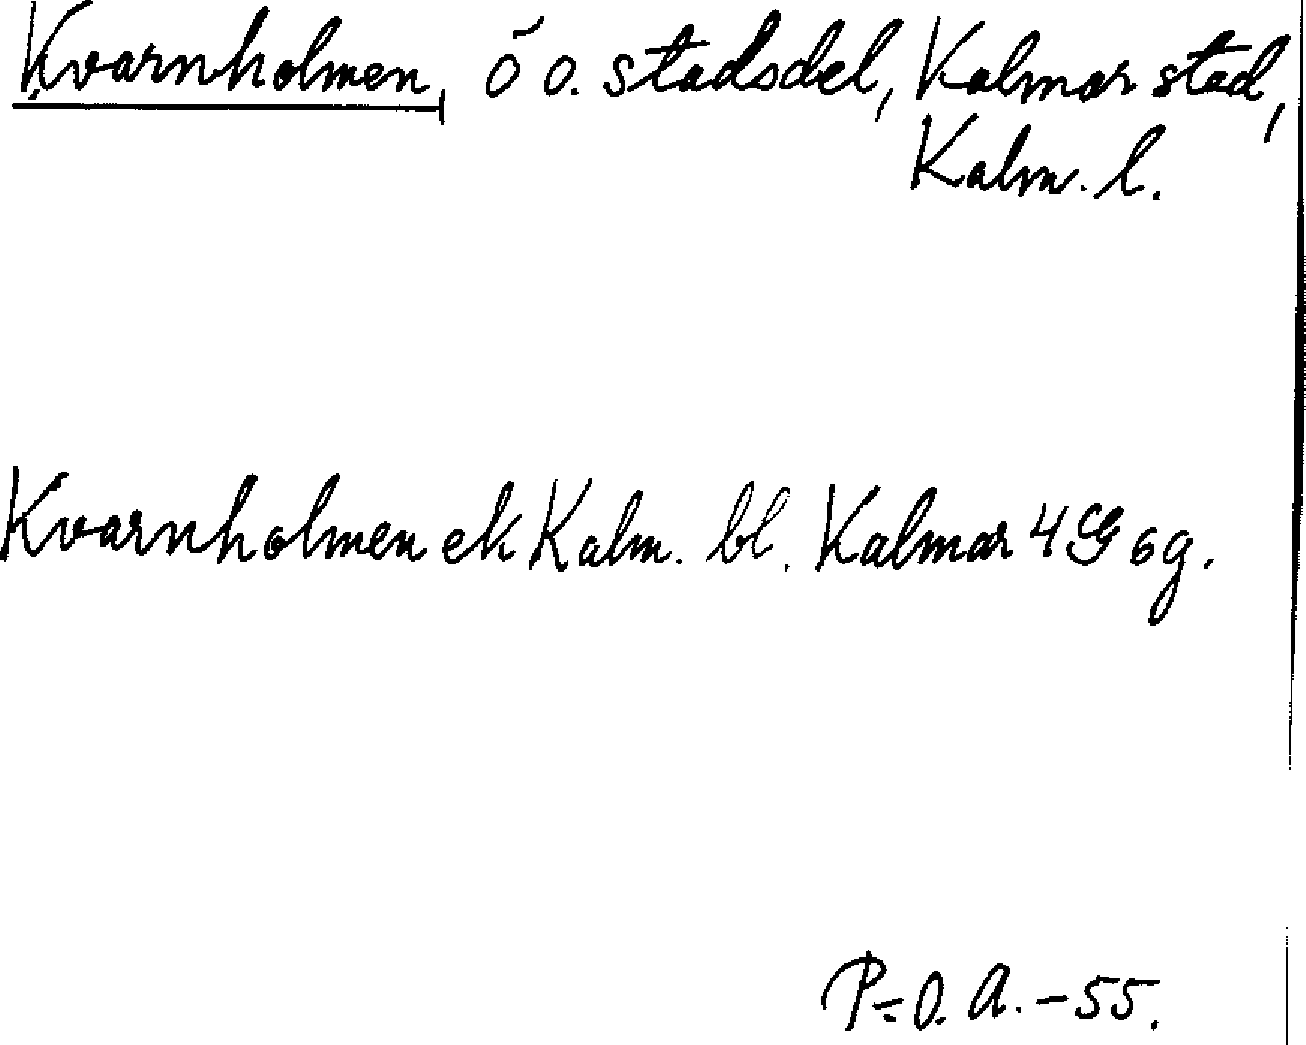 Kvarnholmen, ö o. stadsdel, Kalmar stad,
Kalm. l.
Kvarnholmen ek Kalm. bl. Kalmar 4G 6g.
P-O. A. -55.